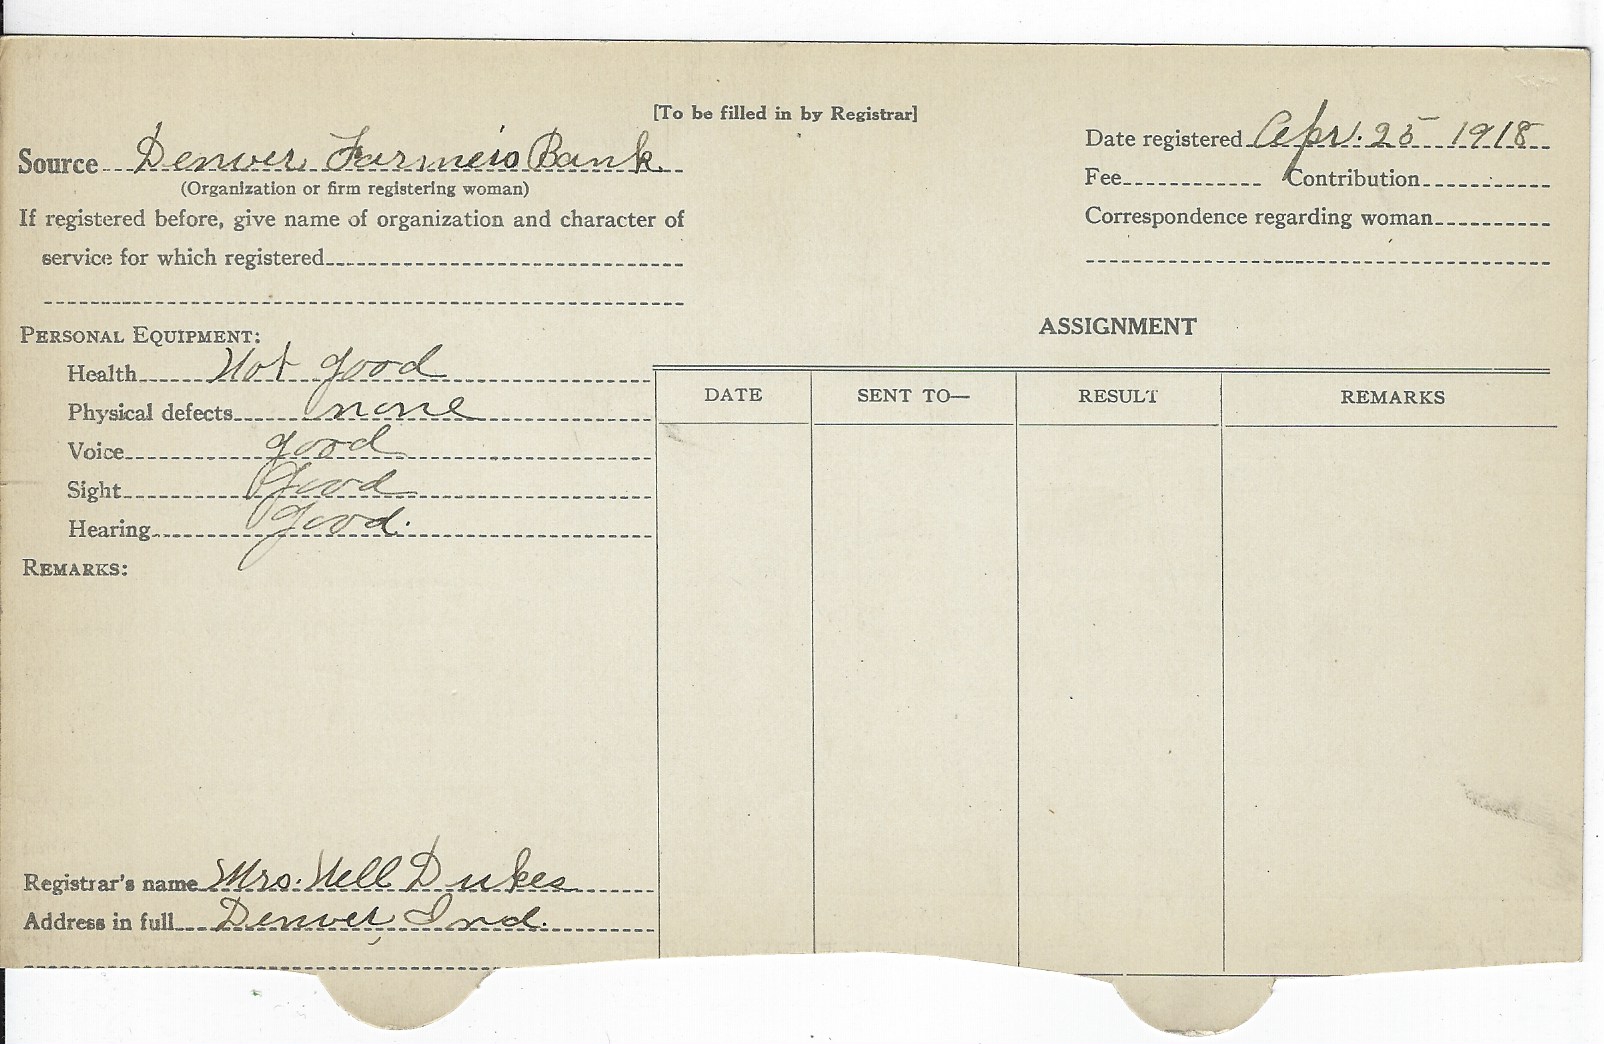 [To be filled in by Registrar]
Source Denver Farmers Bank
(Organization or firm registering woman)
If registered before, give name of organization and character of
service for which registered
PERSONAL EQUIPMENT:
Health Not good
Physical defects none
Voice good
Sight Good
Hearing Good.
REMARKS:
Registrar's name Mrs. Nell Dukes
Address in full Denver, Ind.
Date registered Apr. 25 1918
Fee Contribution
Correspondence regarding woman
ASSIGNMENT
DATE SENT TO— RESULT REMARKS